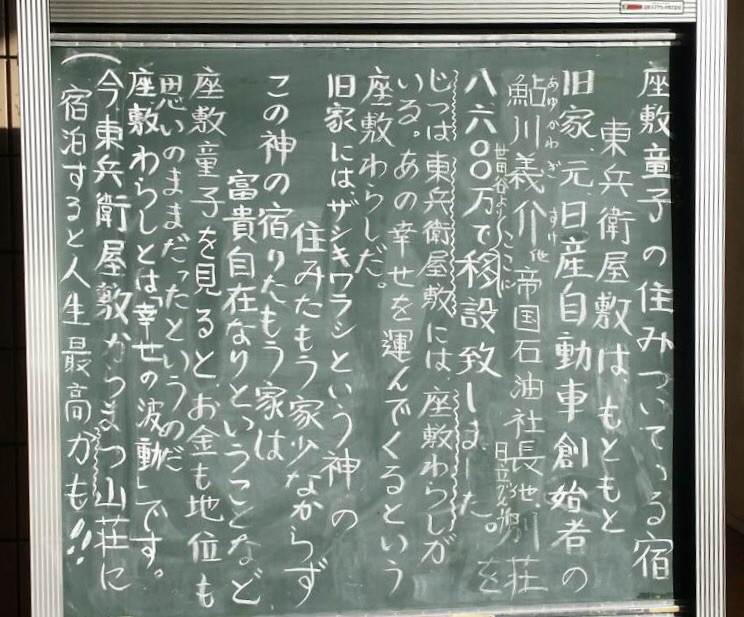 座敷童子の住みついている宿
東兵衛屋敷は、もともと
旧家、元日産自動車創始者の
鮎川義介他帝国石油社長他、別荘を
あゆかわぎすけ
日立グループ
八六〇〇万で移設致しました。
世田谷よりここに
じつは東兵衛屋敷には、座敷わらしが
いる。あの幸せを運んでくるという
座敷わらしだ。
旧家には、ザシキワラシという神の
住みたもう家少なからず
この神の宿りたもう家は
富貴自在なりということなど
座敷童子を見ると、お金も地位も
思いのままだったというのだ
座敷わらしとは「幸せの波動」です。
(今東兵衛屋敷からまつ山荘に
宿泊すると人生最高かも!!